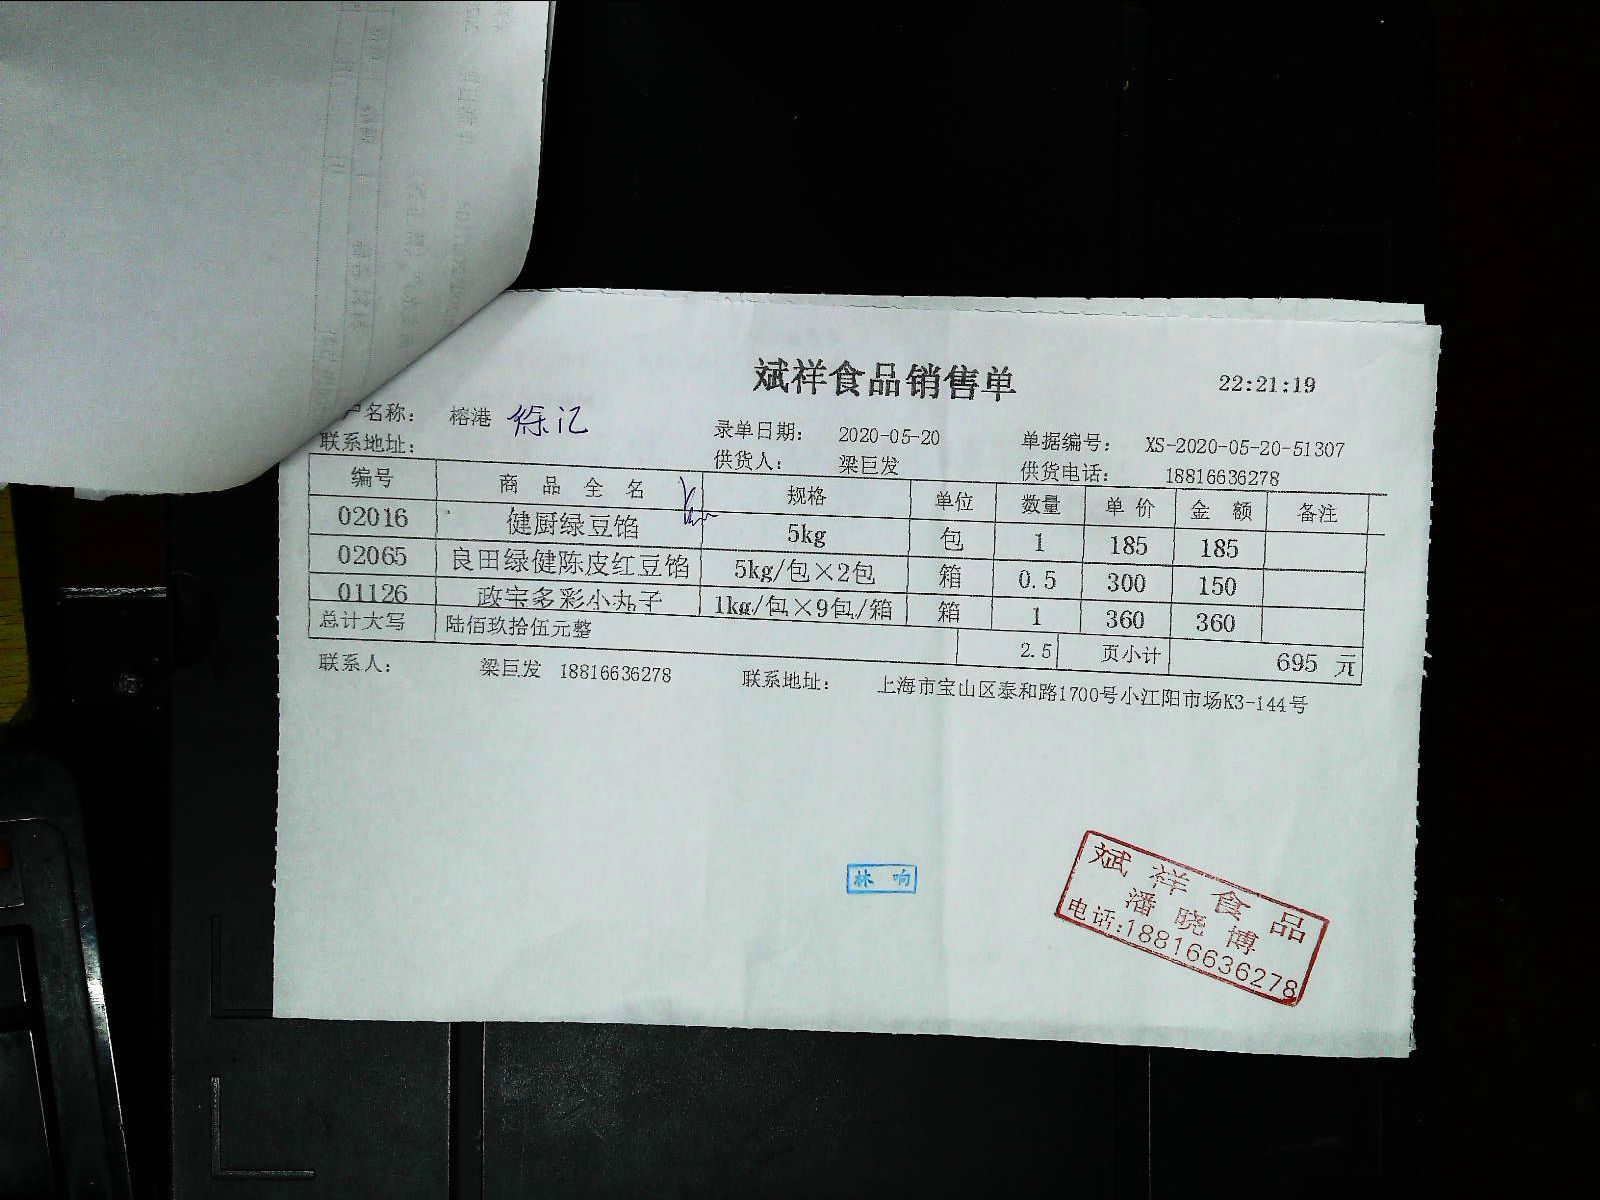 斌祥食品销售单 22:21:19
户名称： 榕港 徐记 录单日期： 2020-05-20 单据编号： XS-2020-05-20-51307
联系地址： 供货人： 梁巨发 供货电话： 18816636278
编号 商品全名 规格 单位 数量 单价 金额 备注
02016 健厨绿豆馅 5kg 包 1 185 185
02065 良田绿健陈皮红豆馅 5kg/包×2包 箱 0.5 300 150
01126 政宝多彩小丸子 1kg/包×9包/箱 箱 1 360 360
总计大写 陆佰玖拾伍元整 2.5 页小计 695 元
联系人： 梁巨发 18816636278 联系地址： 上海市宝山区泰和路1700号小江阳市场K3-144号
林响
斌祥食品
潘晓博
电话:18816636278